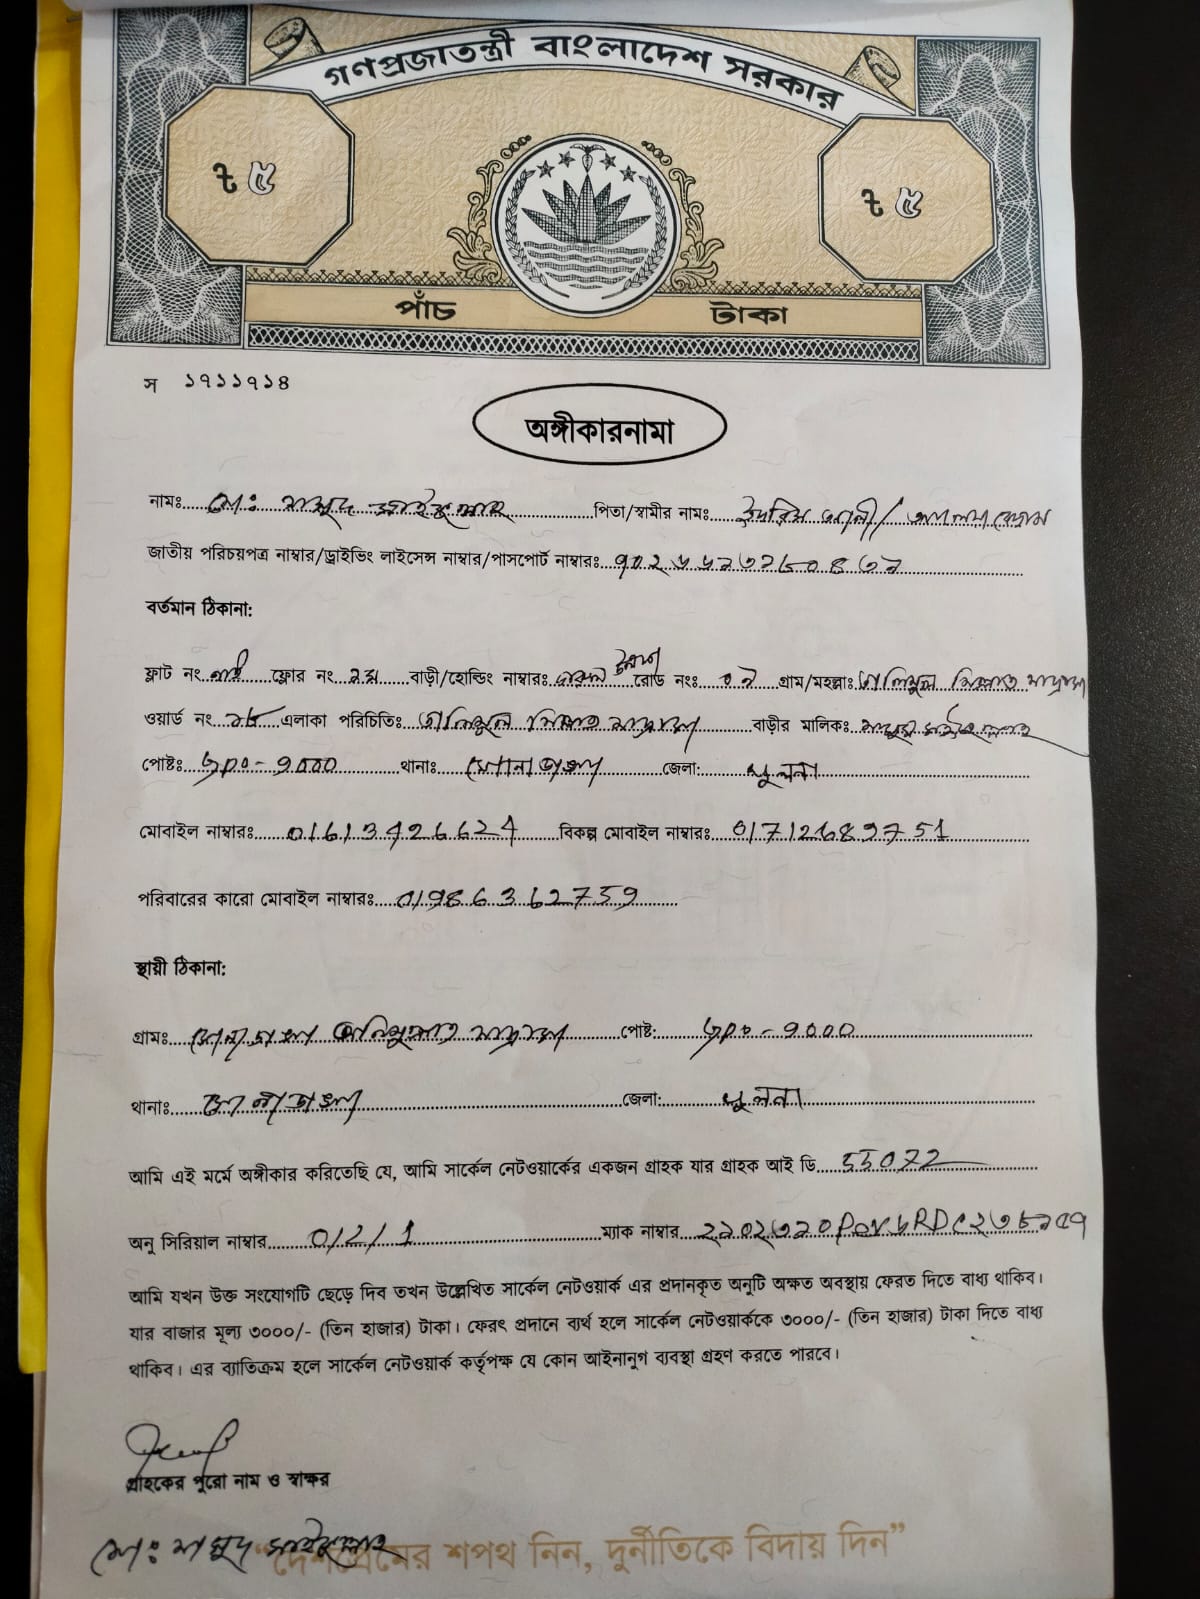 গণপ্রজাতন্ত্রী বাংলাদেশ সরকার
৳ ৫
৳ ৫
পাঁচ টাকা
স ১৭১১৭১৪
অঙ্গীকারনামা
নামঃ মোঃ মাসুদ সাইফুল্লাহ পিতা/স্বামীর নামঃ ইদ্রিস
জাতীয় পরিচয়পত্র নাম্বার/ড্রাইভিং লাইসেন্স নাম্বার/পাসপোর্ট নাম্বারঃ
বর্তমান ঠিকানা:
ফ্লাট নং ফ্লোর নং ২য় বাড়ী/হোল্ডিং নাম্বারঃ রোড নংঃ গ্রাম/মহল্লাঃ
ওয়ার্ড নং ১৮ এলাকা পরিচিতিঃ বাড়ীর মালিকঃ মাসুদ সাইফুল্লাহ
পোষ্টঃ জিপিও - ৯০০০ থানাঃ সোনাডাঙ্গা জেলা: খুলনা
মোবাইল নাম্বারঃ 01613426624 বিকল্প মোবাইল নাম্বারঃ
পরিবারের কারো মোবাইল নাম্বারঃ 01986362759
স্থায়ী ঠিকানা:
গ্রামঃ সোনাডাঙ্গা পোষ্ট: জিপিও - ৯০০০
থানাঃ সোনাডাঙ্গা জেলা: খুলনা
আমি এই মর্মে অঙ্গীকার করিতেছি যে, আমি সার্কেল নেটওয়ার্কের একজন গ্রাহক যার গ্রাহক আই ডি 55072
অনু সিরিয়াল নাম্বার 0/2/1 ম্যাক নাম্বার
আমি যখন উক্ত সংযোগটি ছেড়ে দিব তখন উল্লেখিত সার্কেল নেটওয়ার্ক এর প্রদানকৃত অনুটি অক্ষত অবস্থায় ফেরত দিতে বাধ্য থাকিব।
যার বাজার মূল্য ৩০০০/- (তিন হাজার) টাকা। ফেরৎ প্রদানে ব্যর্থ হলে সার্কেল নেটওয়ার্ককে ৩০০০/- (তিন হাজার) টাকা দিতে বাধ্য
থাকিব। এর ব্যাতিক্রম হলে সার্কেল নেটওয়ার্ক কর্তৃপক্ষ যে কোন আইনানুগ ব্যবস্থা গ্রহণ করতে পারবে।
গ্রাহকের পুরো নাম ও স্বাক্ষর
মোঃ মাসুদ সাইফুল্লাহ
“দেশপ্রেমের শপথ নিন, দুর্নীতিকে বিদায় দিন”